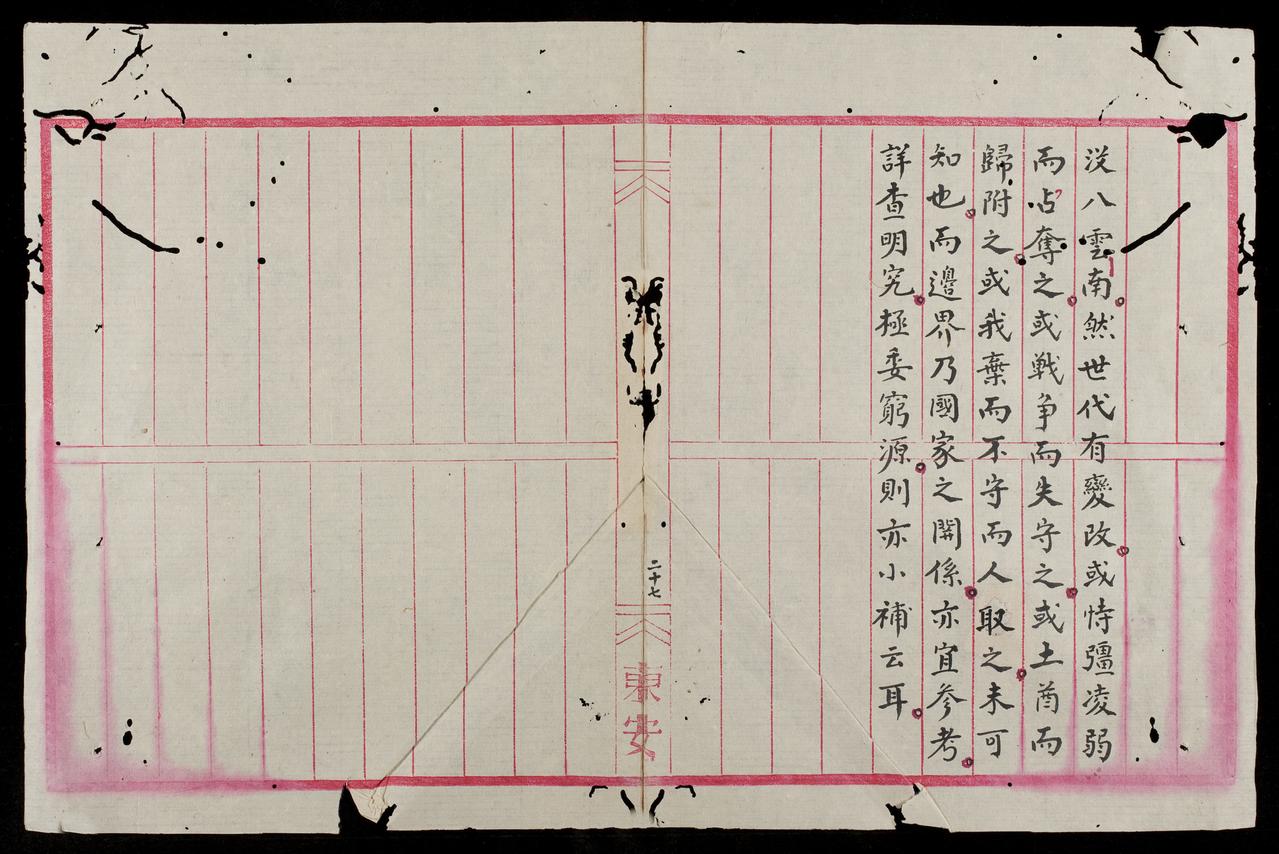 没八雲南然世代有變改或恃彊凌弱
而占奪之或戦争而失守之或土酋而
歸附之或我棄而不守而人取之未可
知也而邊界乃國家之関係亦宜参考
詳查明究極委窮源則亦小補云耳
二十七
東安